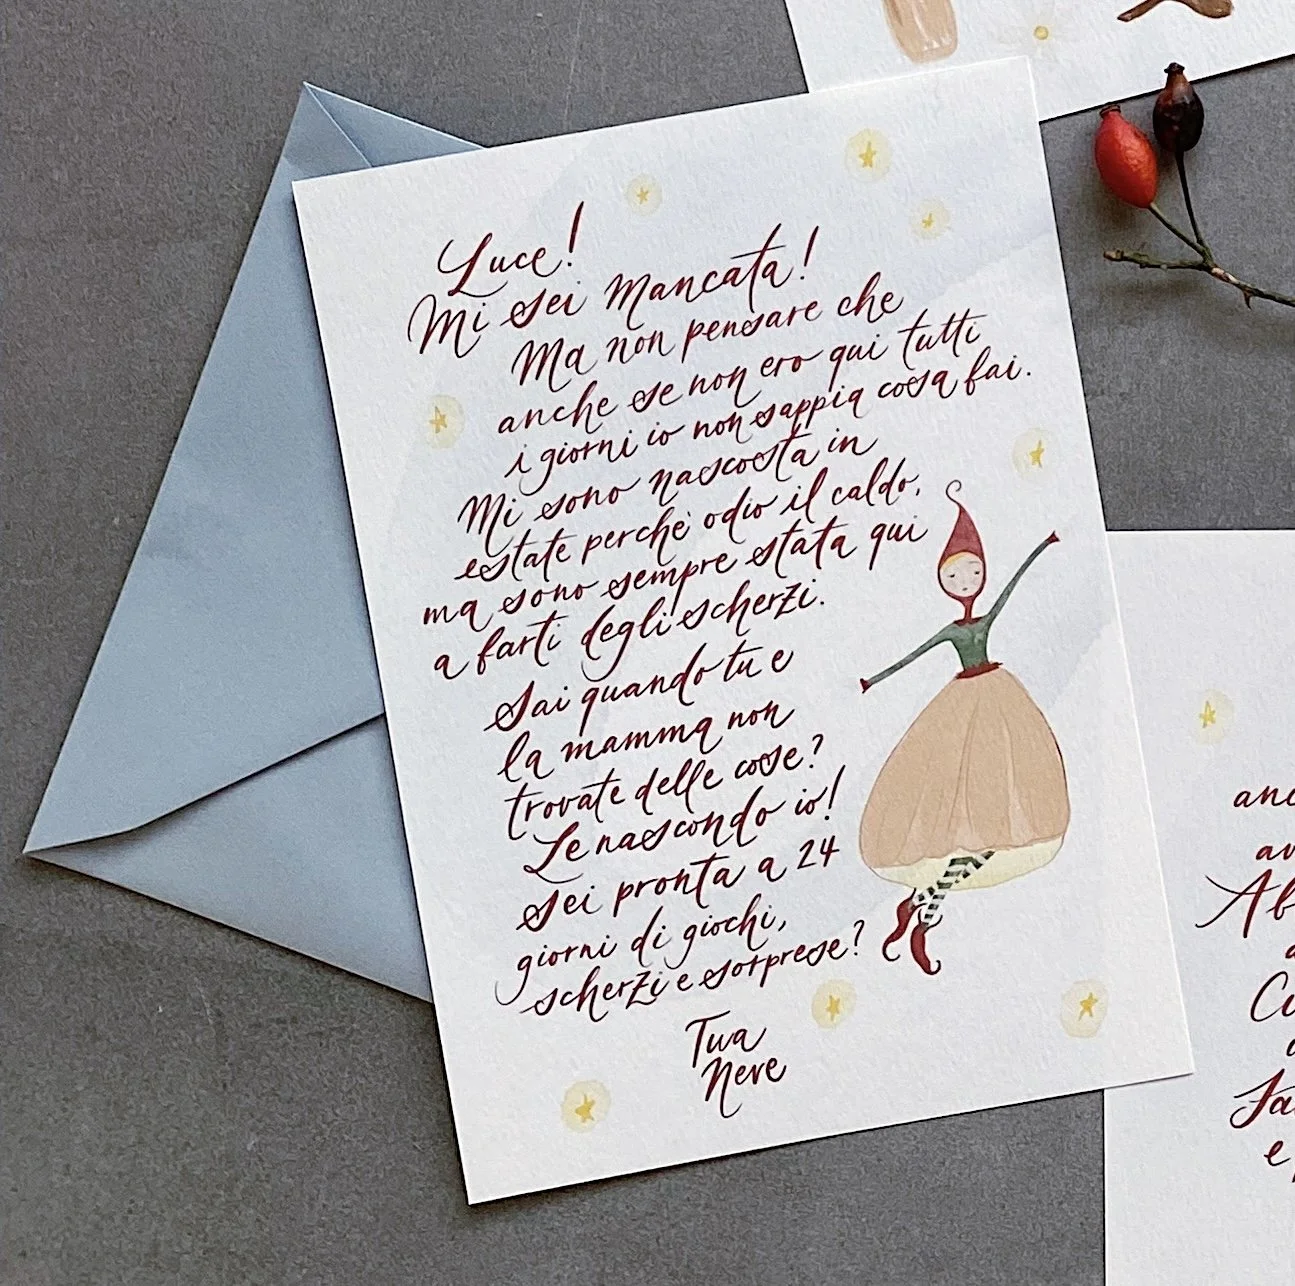 Luce!
Mi sei mancata!
Ma non pensare che
anche se non ero qui tutti
i giorni io non sappia cosa fai.
Mi sono nascosta in
estate perchè odio il caldo,
ma sono sempre stata qui
a farti degli scherzi.
Sai quando tu e
la mamma non
trovate delle cose?
Le nascondo io!
Sei pronta a 24
giorni di giochi,
scherzi e sorprese?
Tua
Neve